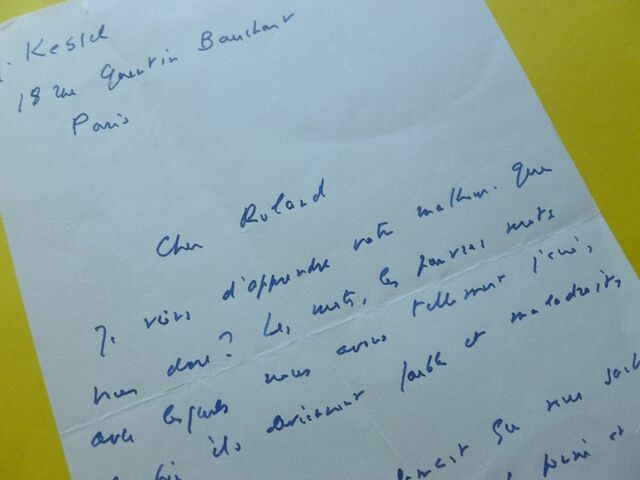 J. Kessel
18 rue Quentin Bauchart
Paris
Cher Roland
Je viens d'apprendre votre malheur. Que
vous dire ? Les mots, les pauvres mots
avec lesquels nous avons tellement joué,
ils deviennent faibles et maladroits
vous
et